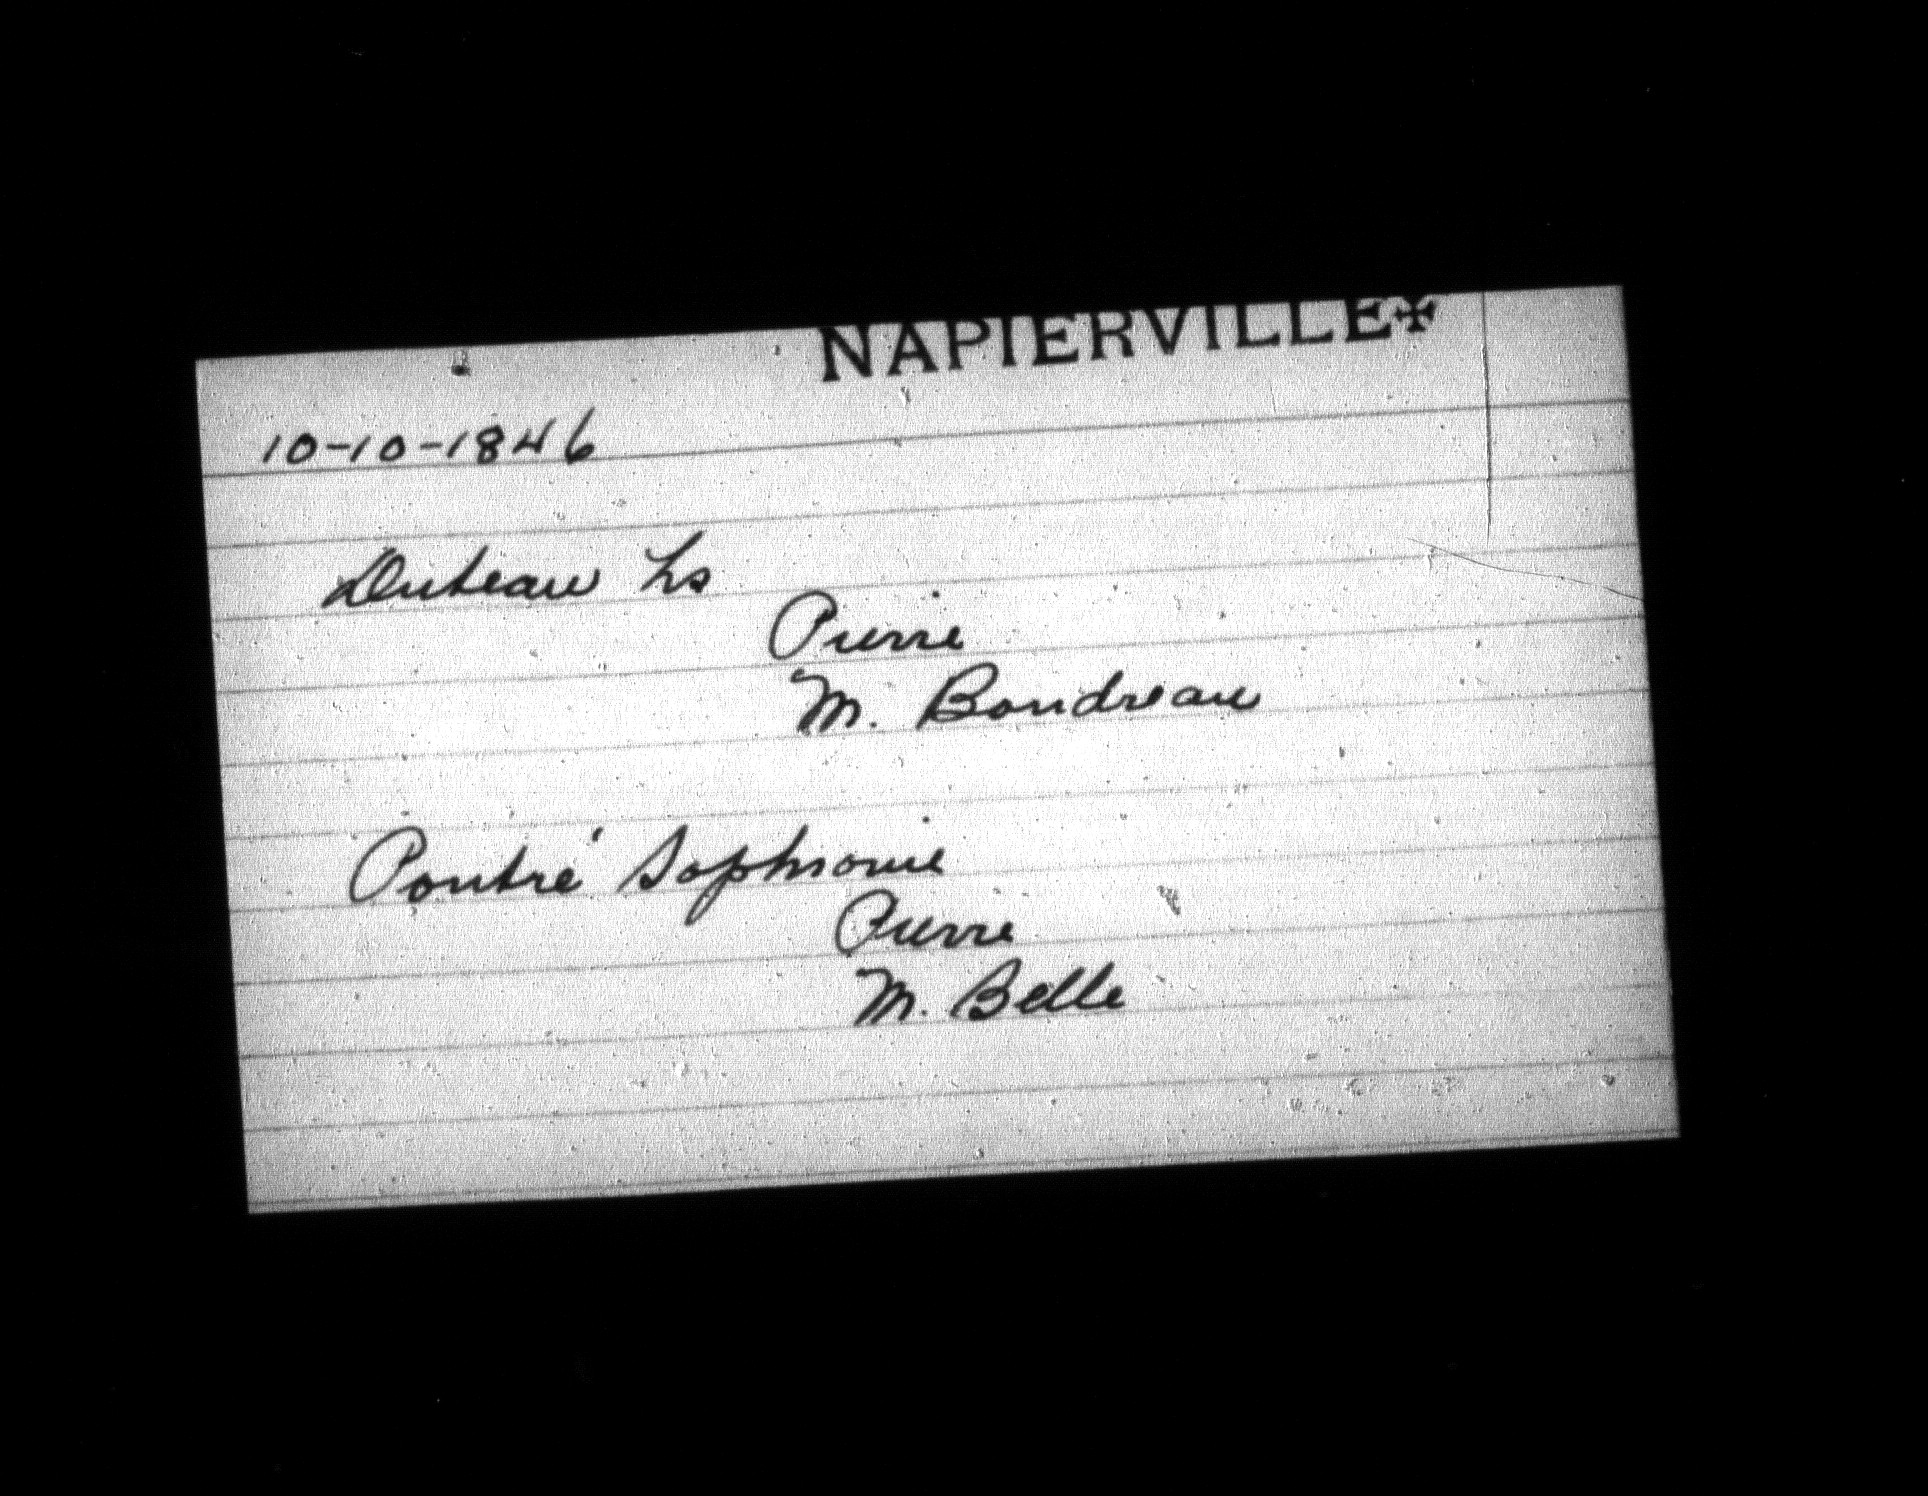 NAPIERVILLE✠
10-10-1846
Duteau Ls
Pierre
M. Boudreau
Poutré Sophronie
Pierre
M. Belle